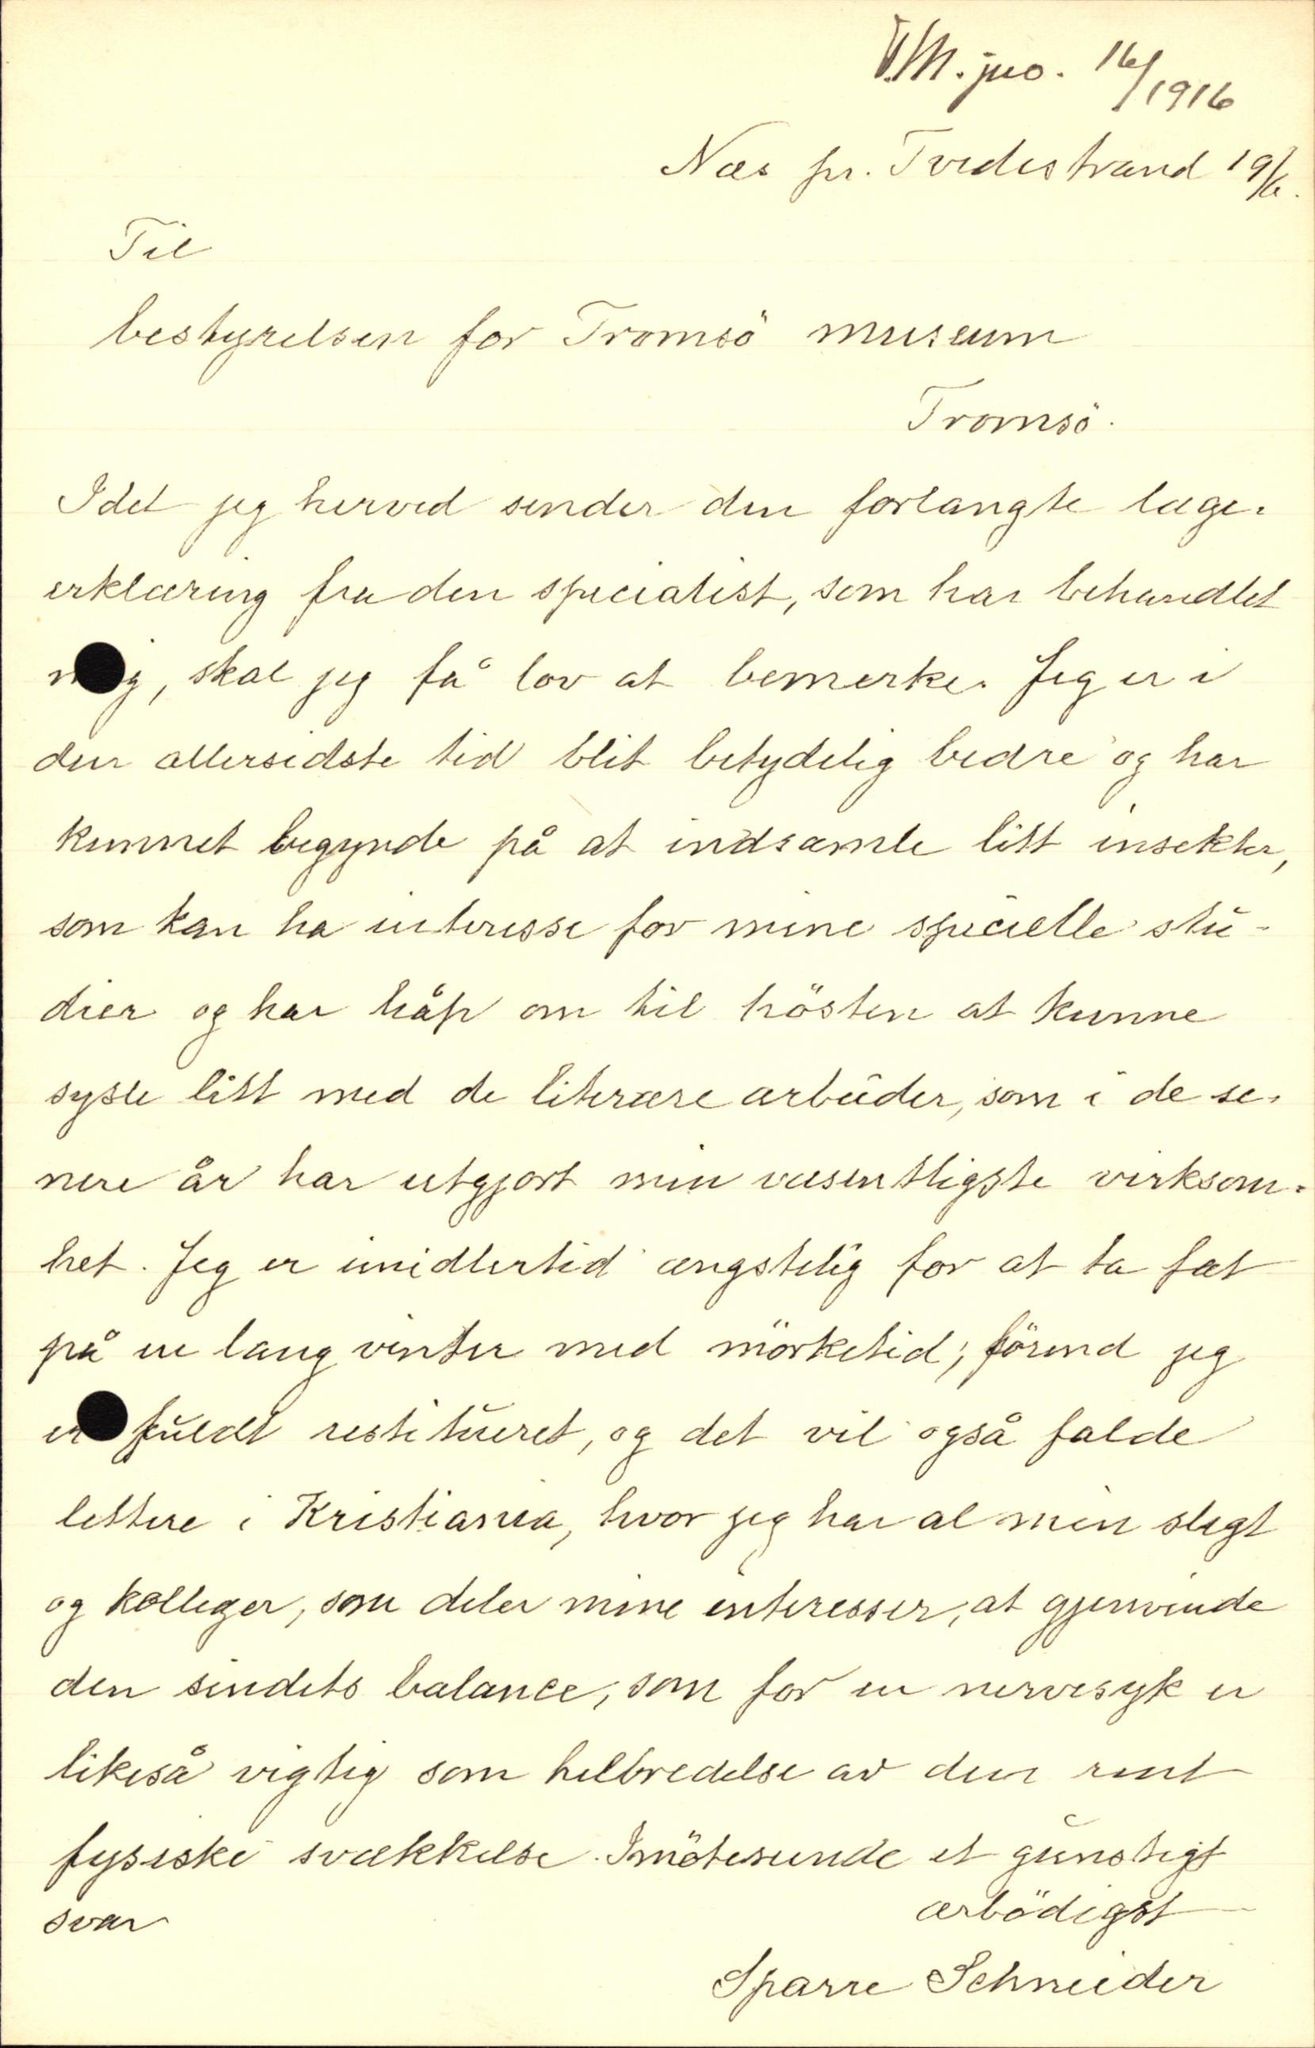 T.M. jno. 16/1916
Næs pr. Tvedestrand 19/6.
Til
bestyrelsen for Tromsö museum
Tromsö.
Idet jeg herved sender den forlangte læge-
erklæring fra den specialist, som har behandlet
mig, skal jeg få lov at bemerke. Jeg er i
den allersidste tid blit betydelig bedre og har
kunnet begynde på at indsamle litt insekter,
som kan ha interesse for mine specielle stu-
dier og har håp om til hösten at kunne
sysle litt med de literære arbeider, som i de se-
nere år har utgjort min væsentligste virksom-
het. Jeg er imidlertid ængstelig for at ta fat
på en lang vinter med mörketid, förend jeg
er fuldt restitueret, og det vil også falde
lettere i Kristiania, hvor jeg har al min slegt
og kolleger, som deler mine interesser, at gjenvinde
den sindets balance, som for en nervesyk er
likeså vigtig som helbredelse av den rent
fysiske svækkelse. Imötesende et gunstigt
svar
ærbödigst
Sparre Schneider